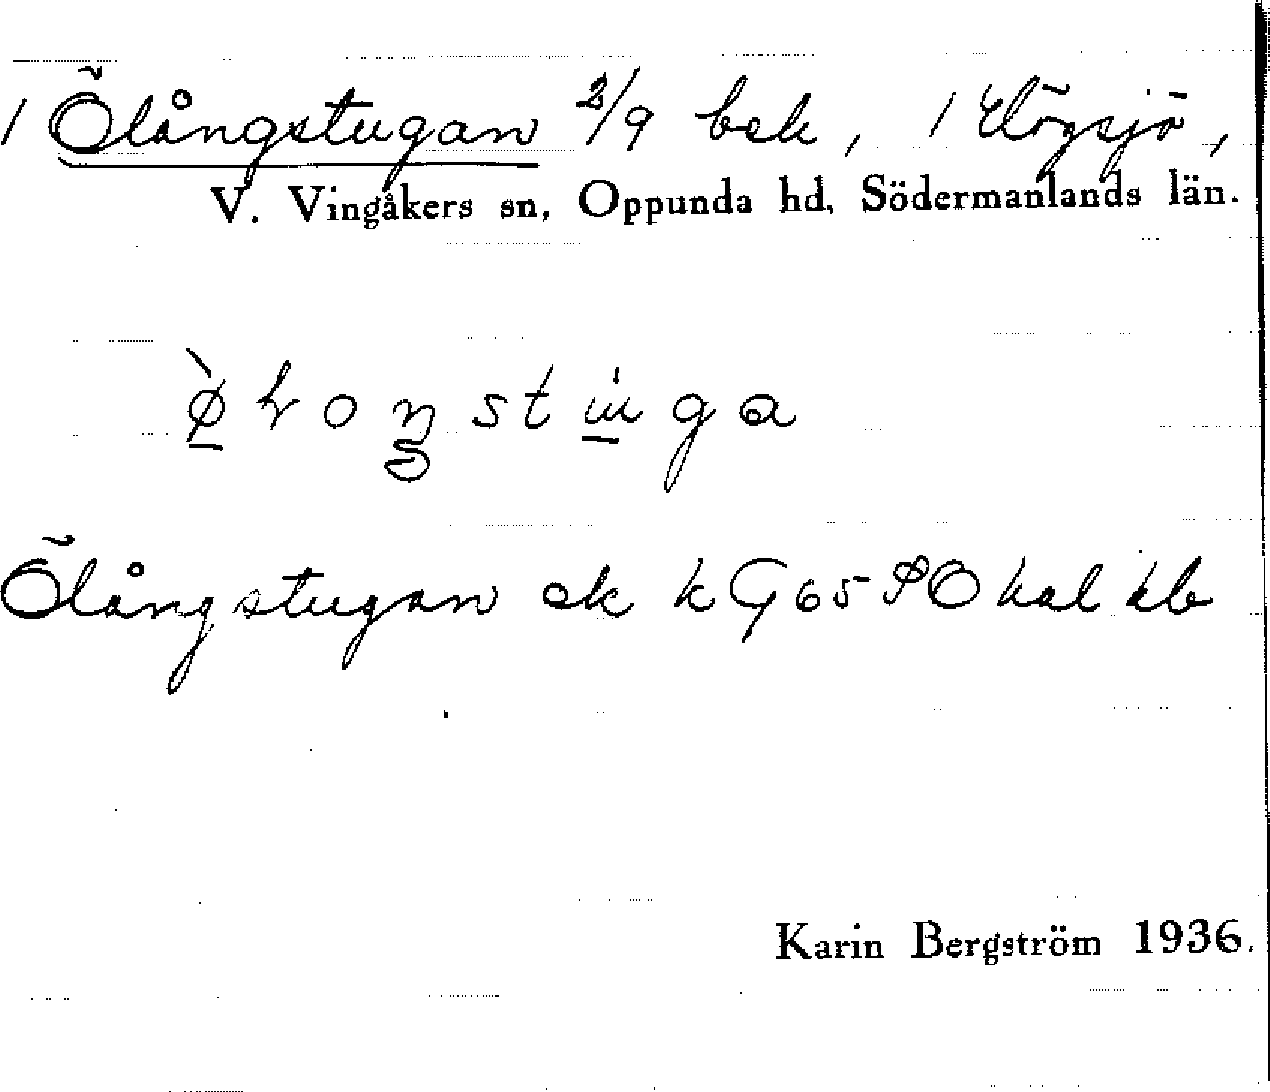 1 Ölångstugan 2/9 bek, 1 Högsjö,
V. Vingåkers sn, Oppunda hd, Södermanlands län.
Ölångstugan ek kG 65 SO kal
Karin Bergström 1936.